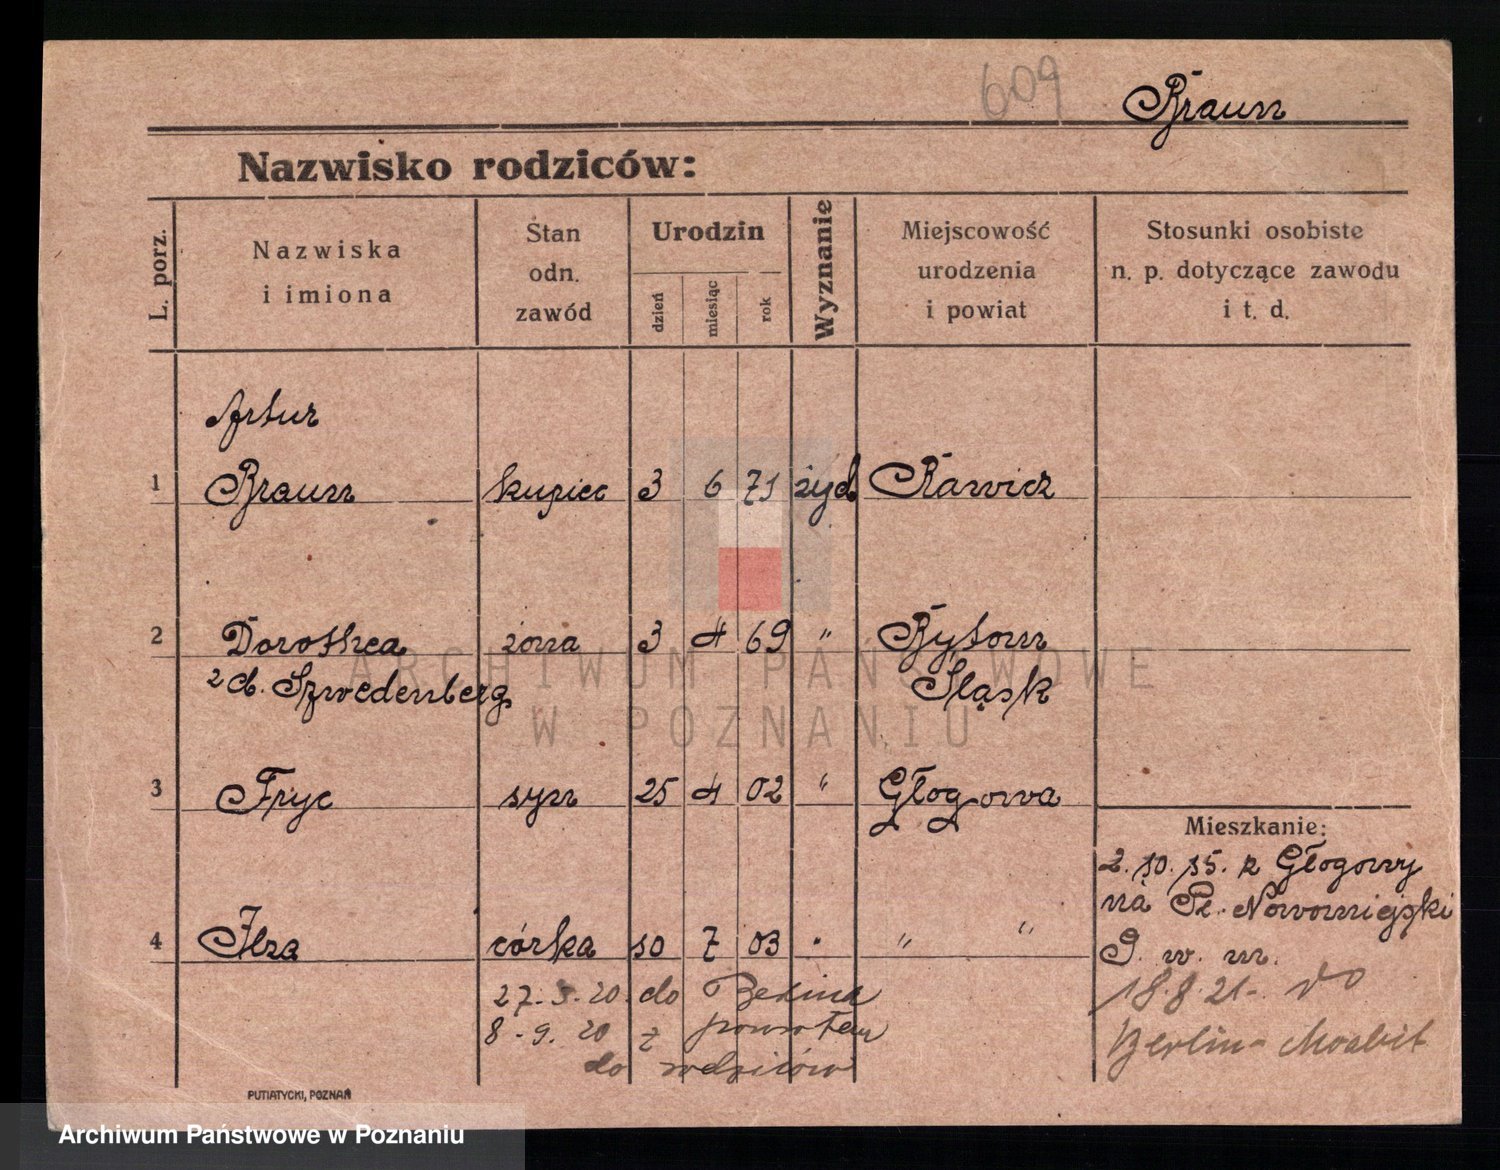 609
Braun
Nazwisko rodziców:
L. porz.
Nazwiska
i imiona
Stan
odn.
zawód
Urodzin
dzień
miesiąc
rok
Wyznanie
Miejscowość
urodzenia
i powiat
Stosunki osobiste
n. p. dotyczące zawodu
i t. d.
Artur
1 Braun kupiec 3 6 71 żyd Rawicz
2 Dorothea żona 3 4 69 " Bytom
Szwedenberg Śląsk
3 Fryc syn 25 4 02 " Głogowa
Mieszkanie:
2.10.15. z Głogowy
na Pl. Nowomiejski
4 Ilza córka 10 7 03 " "
9. w. m.
27.5.20. do Berlina
18.8.21. do
8.9.20 z powrotem
Berlin-Moabit
do rodziców
PUTIATYCKI, POZNAŃ
ARCHIWUM PAŃSTWOWE
W POZNANIU
Archiwum Państwowe w Poznaniu